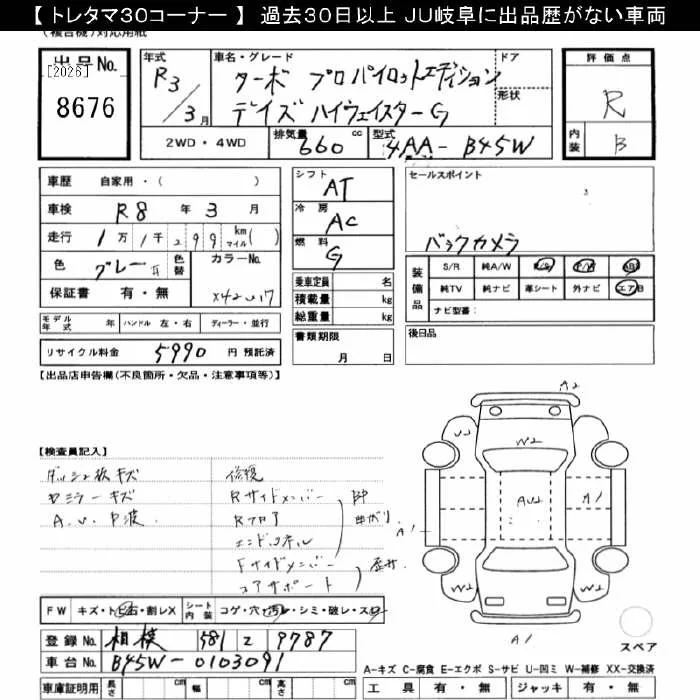 【 トレタマ30コーナー 】 過去30日以上 JU岐阜に出品歴がない車両
(複合機)対応用紙
出品No.
[2026]
8676
年式
R3/3月
車名・グレード
ターボ プロパイロットエディション
デイズ ハイウェイスターG
ドア
形状
評価点
R
内装 B
2WD・4WD
排気量 660 cc
型式 4AA-B45W
車歴 自家用・( )
車検 R8年 3月
走行 1万1千299 km マイル( )
色 グレー
色替
カラーNo.
保証書 有・無
シフト AT
冷房 AC
燃料 G
乗車定員 名
積載量 kg
総重量 kg
書類期限
月 日
セールスポイント
バックカメラ
装備品
S/R 純A/W P/S P/W AB
純TV 純ナビ 革シート 外ナビ エアB
ナビ型番:
後日品
モデル年式 年 ハンドル 左・右 ディーラー・並行
リサイクル料金 5990 円 預託済
【出品店申告欄(不良箇所・欠品・注意事項等)】
【検査員記入】
ダッシュ板キズ
セミラーキズ
A.U.W波
修復
Rサイドメンバー
Rフロア
エンドパネル
曲がり
Fサイドメンバー
コアサポート
A2
W2
AU2
A1
A1
W2
W2
A1
FW キズ・トビ石・割レX
シート内装 コゲ・穴・汚レ・シミ・破レ・スレ
登録No. 相模 581 9787
車台No. B45W-0103091
車庫証明用 長さ cm 幅 cm 高さ cm
スペア
A-キズ C-腐食 E-エクボ S-サビ U-凹ミ W-補修 XX-交換済
工具 有・無 ジャッキ 有・無